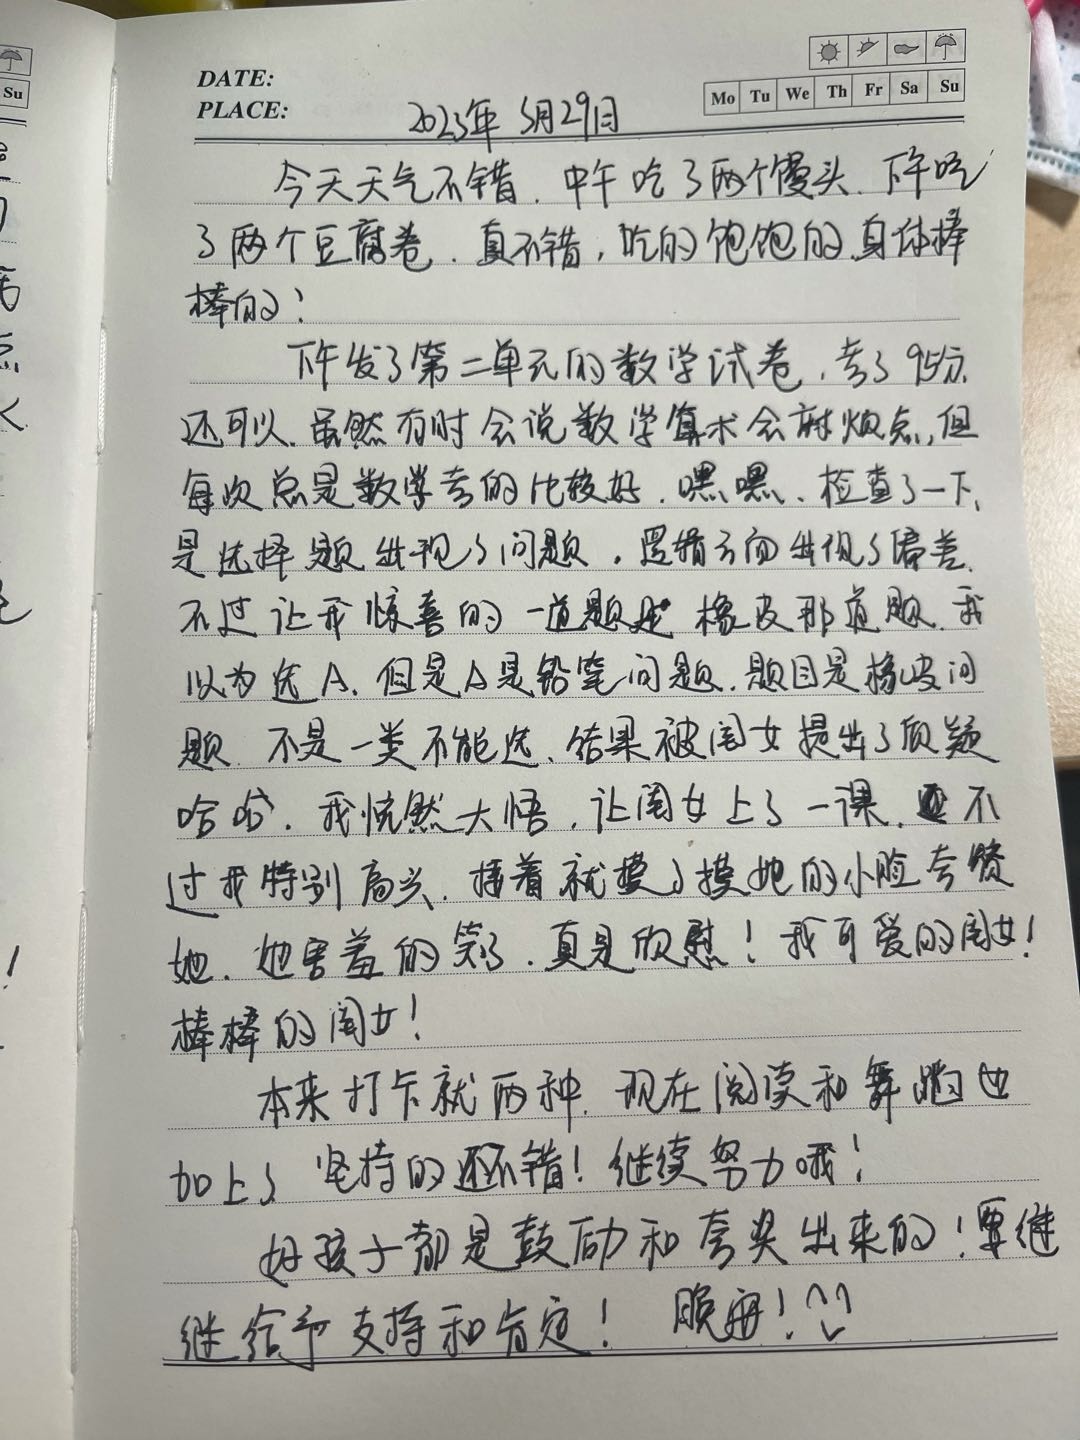 Su
DATE:
PLACE:
Mo Tu We Th Fr Sa Su
2023年 3月29日
今天天气不错.中午吃了两个馒头.下午吃
了两个豆腐卷.真不错,吃的饱饱的.身体棒
棒的!
下午发了第二单元的数学试卷.考了95分.
还可以.虽然有时会说数学算术会麻烦点,但
每次总是数学考的比较好.嘿嘿.检查了一下.
是选择题出现了问题.逻辑方面出现了偏差.
不过让我惊喜的一道题是橡皮那道题.我
以为选A.但是A是铅笔问题.题目是橡皮问
题.不是一类不能选.结果被闺女提出了质疑
哈哈.我恍然大悟.让闺女上了一课.不
过我特别高兴.接着就摸了摸她的小脸夸赞
她.她害羞的笑了.真是欣慰!我可爱的闺女!
棒棒的闺女!
本来打卡就两种.现在阅读和舞蹈也
加上了 坚持的还不错!继续努力哦!
好孩子都是鼓励和夸奖出来的!要继
继给予支持和肯定! 晚安!